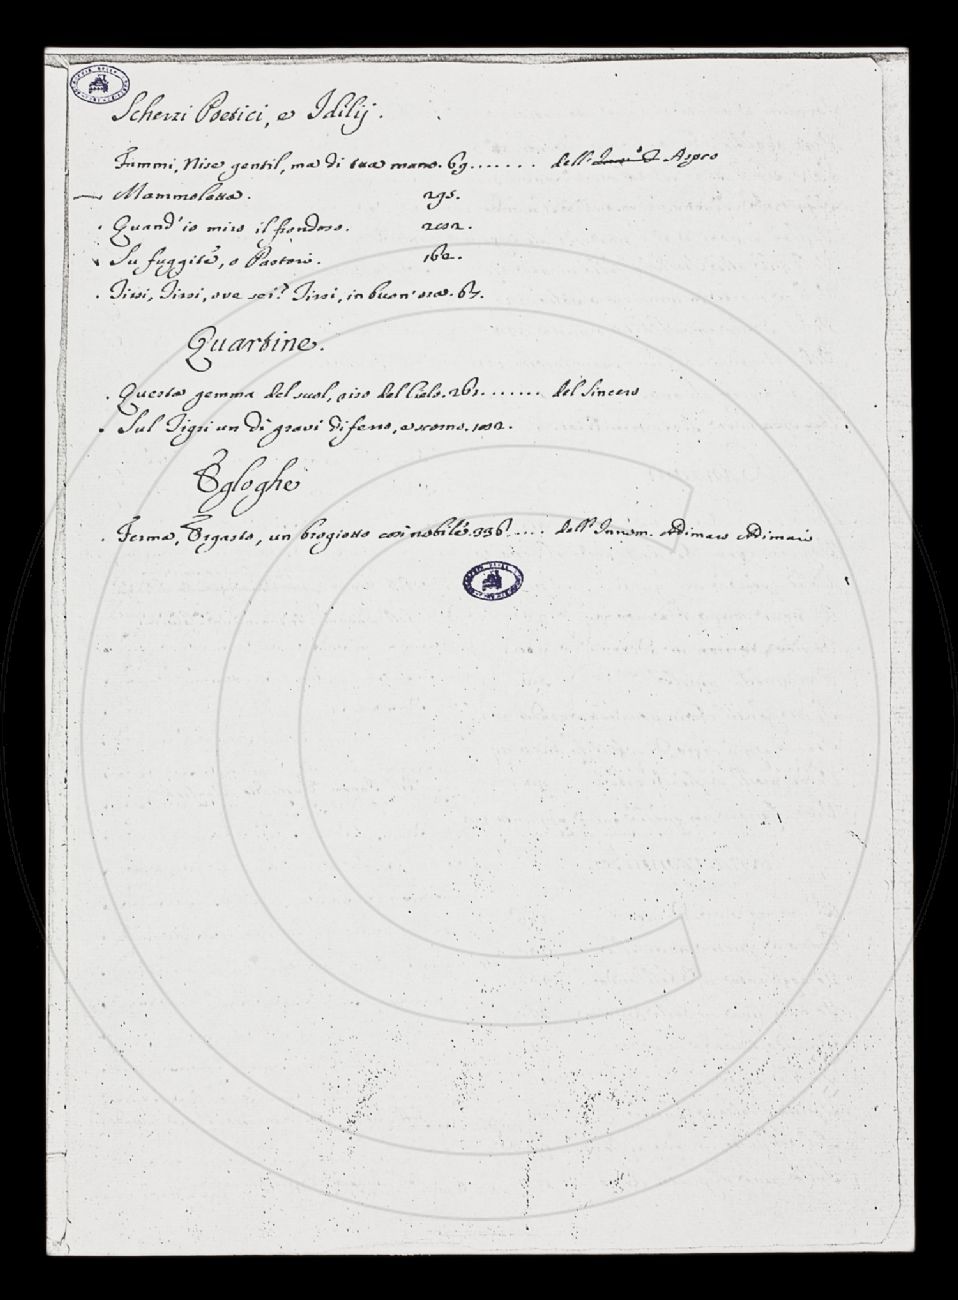 Scherzi Poetici, e Idilij.
Fammi, Nise gentil, ma di tua mano. 69....... dell' Aspro
Mammoletta. 295.
Quand' io miro il frondoso. 202.
Su fuggite, o Pastori. 162.
Tirsi, Tirsi, ove sei? Tirsi, in buon' ora. 67.
Quartine.
Questa gemma del suol, riso del Cielo. 261....... del Sincero
Sul Tigri un dì gravi di ferro, e 102.
Egloghe
Ferma, Ergasto, un brogiotto così nobile. 336..... dell' Innom. Adimaro Adimari